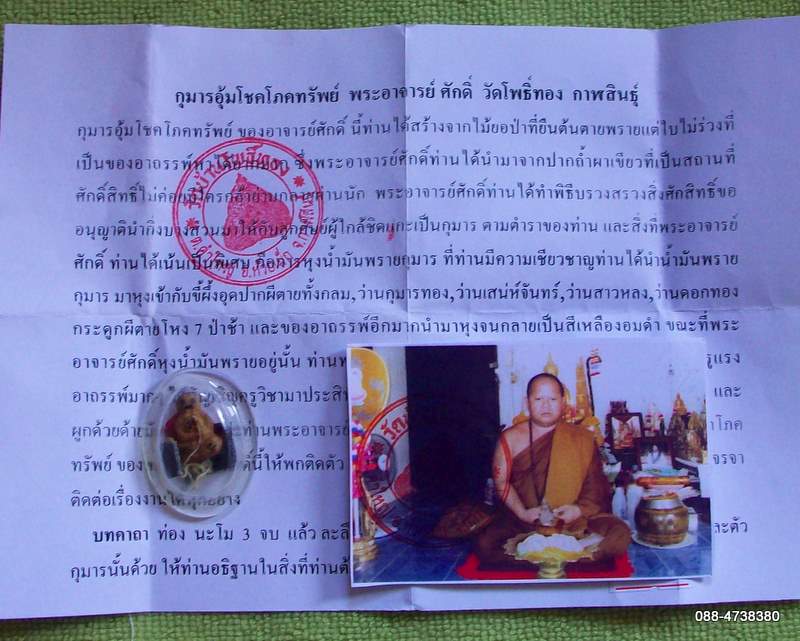 กุมารอุ้มโชคโภคทรัพย์ พระอาจารย์ ศักดิ์ วัดโพธิ์ทอง กาฬสินธุ์
กุมารอุ้มโชคโภคทรัพย์ ของอาจารย์ศักดิ์ นี้ท่านได้สร้างจากไม้ยอป่าที่ยืนต้นตายพรายแต่ใบไม่ร่วงที่
เป็นของอาถรรพ์หาได้ยากมาก ซึ่งพระอาจารย์ศักดิ์ท่านได้นำมาจากปากถ้ำผาเขียวที่เป็นสถานที่
ศักดิ์สิทธิ์ไม่ค่อยมีใครกล้าย่างกลายผ่านนัก พระอาจารย์ศักดิ์ท่านได้ทำพิธีบรวงสรวงสิ่งศักสิทธิ์ขอ
อนุญาตินำกิ่งบางส่วนมาให้กับลูกศิษย์ผู้ใกล้ชิดแกะเป็นกุมาร ตามตำราของท่าน และสิ่งที่พระอาจารย์
ศักดิ์ ท่านได้เน้นเป็นพิเศษ คือการหุงน้ำมันพรายกุมาร ที่ท่านมีความเชียวชาญท่านได้นำน้ำมันพราย
กุมาร มาหุงเข้ากับขี้ผึ้งอุดปากผีตายทั้งกลม,ว่านกุมารทอง,ว่านเสน่ห์จันทร์,ว่านสาวหลง,ว่านดอกทอง
กระดูกผีตายโหง 7 ป่าช้า และของอาถรรพ์อีกมากนำมาหุงจนกลายเป็นสีเหลืองอมดำ ขณะที่พระ
อาจารย์ศักดิ์หุงน้ำมันพรายอยู่นั้น ท่าน แรง
อาถรรพ์มาก ครูวิชามาประสิ และ
ผูกด้วยด้าย ท่านพระอาจาร โภค
ทรัพย์ ของ นี้ให้พกติดตัว จรจา
ติดต่อเรื่องงานได้ทุกอย่าง
บทคาถา ท่อง นะโม 3 จบ แล้ว ละตัว
กุมารนั้นด้วย ให้ท่านอธิฐานในสิ่งที่ท่านต้
088-4738380